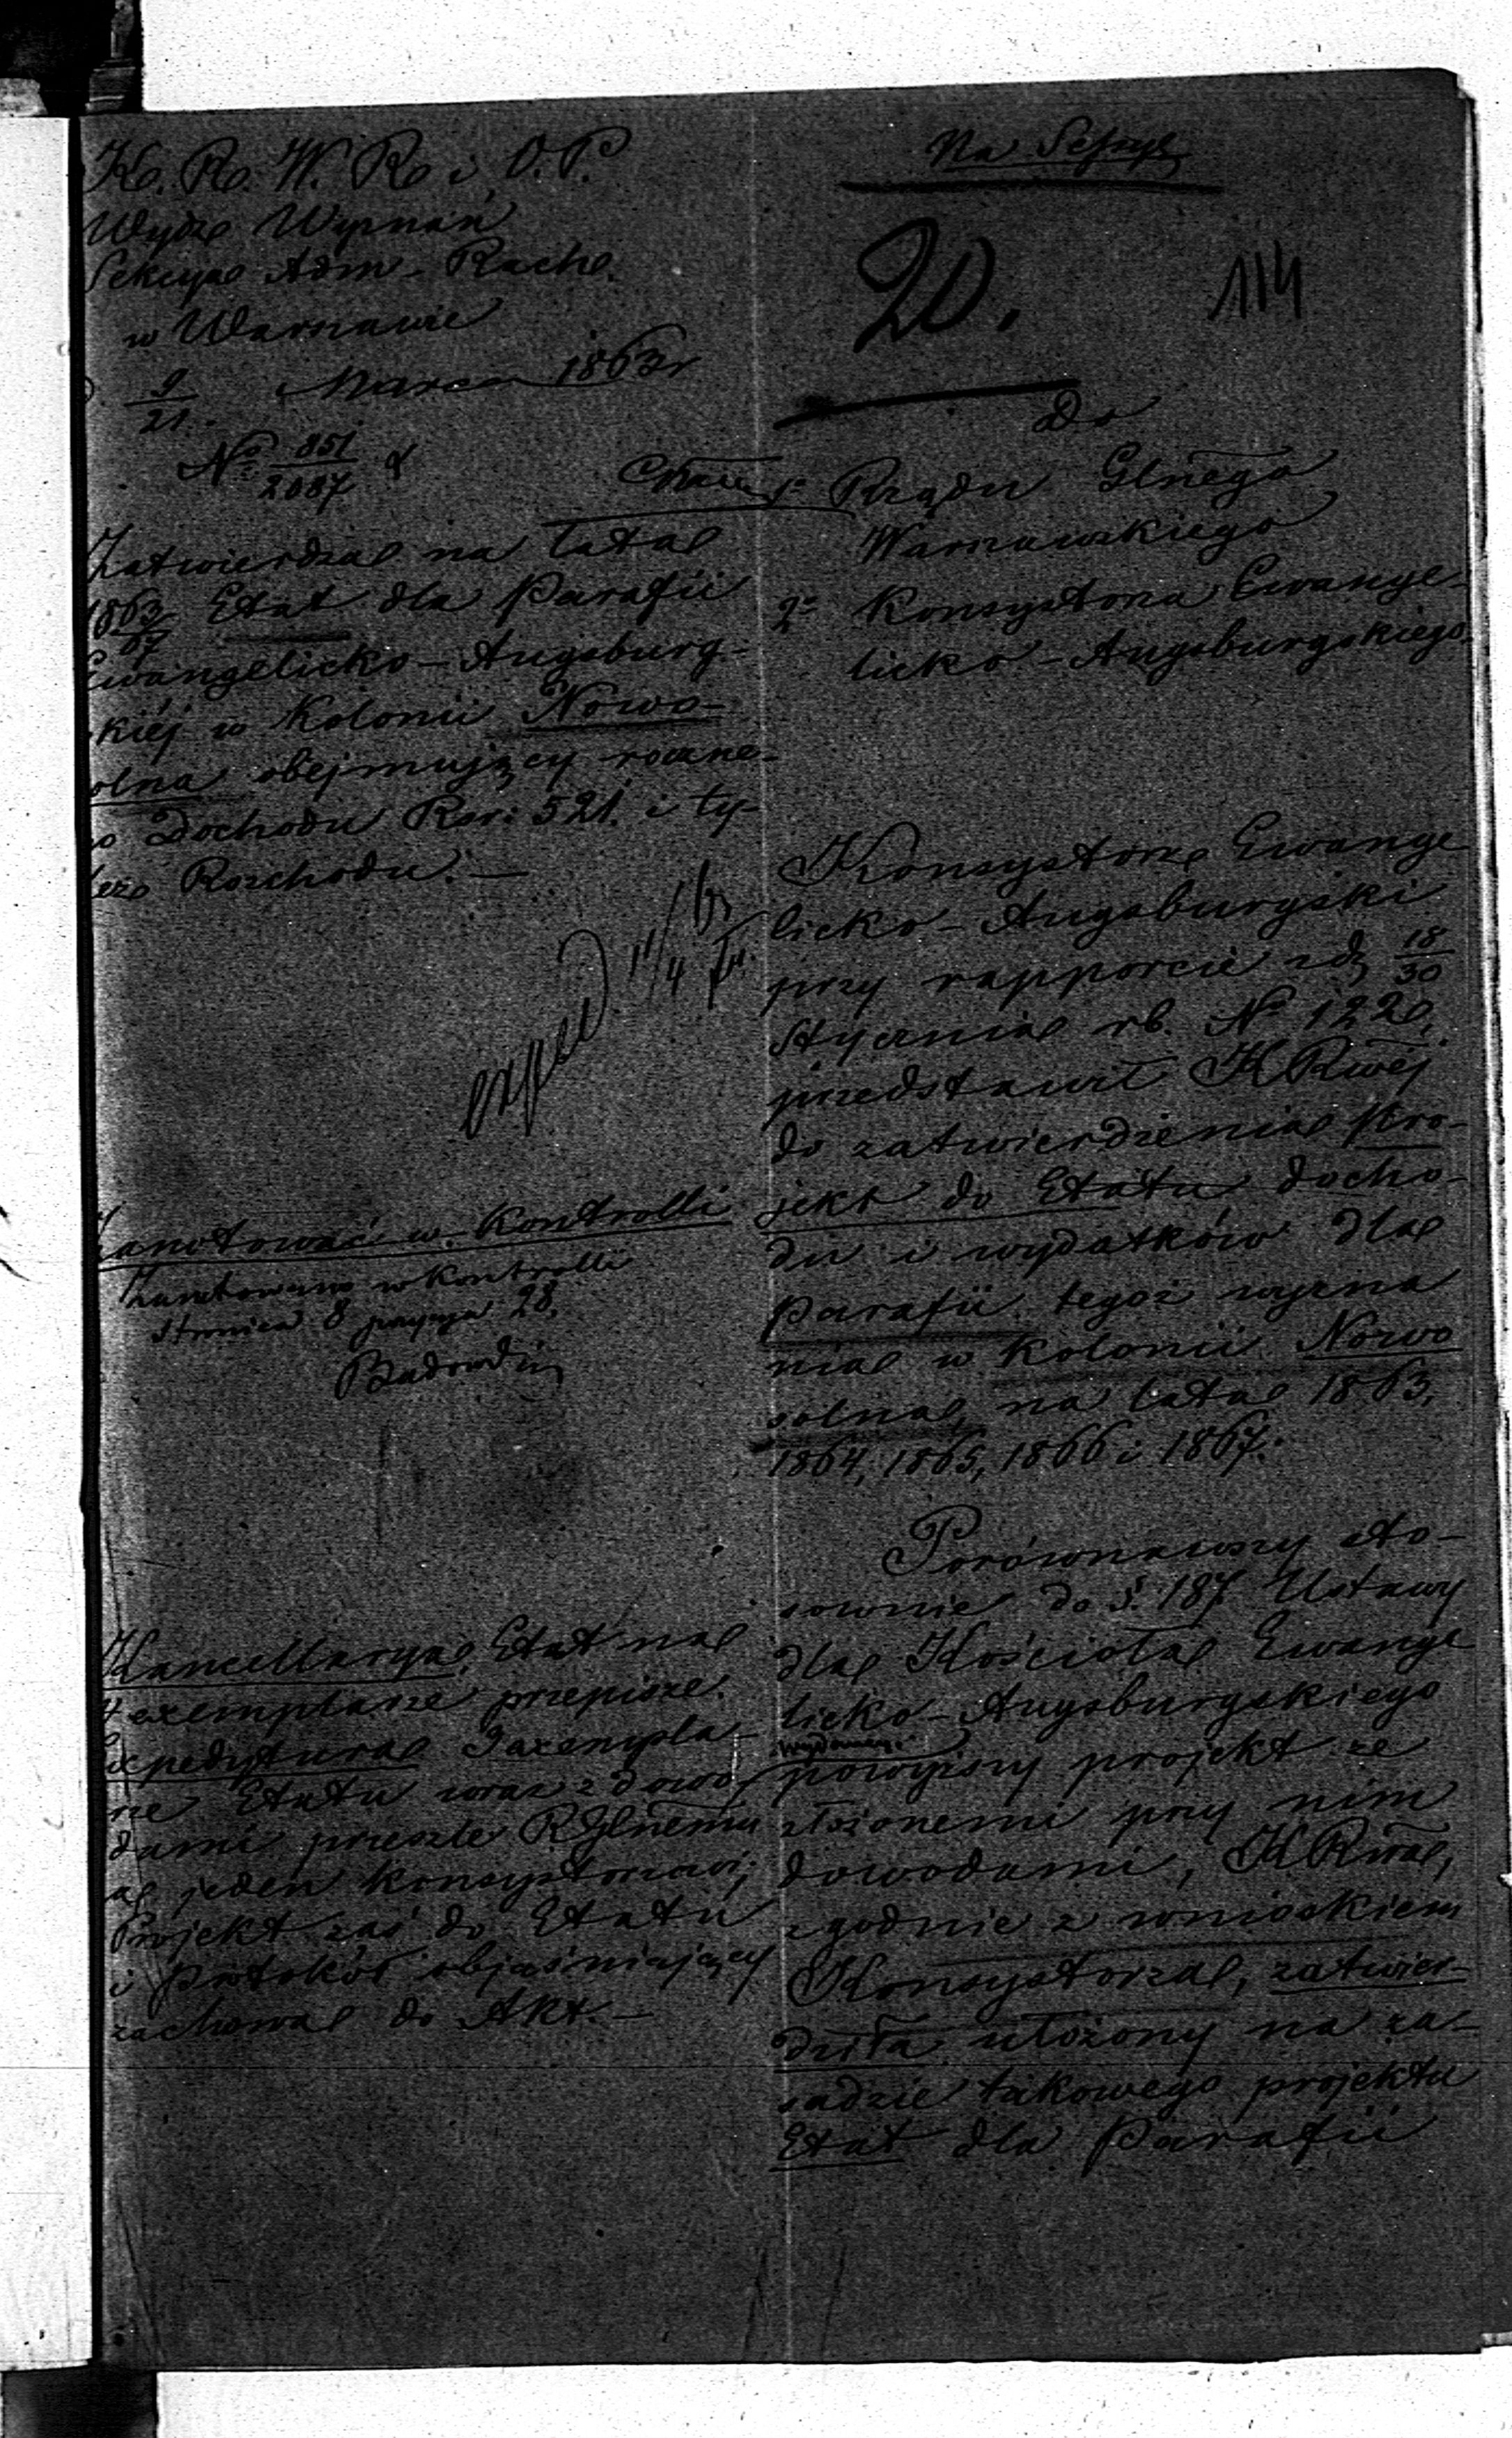 K. R. W. R. i O. P.
Wydz Wyznań
Sekcya Adm - Rach.
w Warszawie
9/21 Marca 1863 r
No 851/2087
Zatwierdza na lata
1863/67 Etat dla Parafii
Ewangelicko - Augsburg-
skiéj w Kolonii Nowo-
solna obejmujący roczne-
go Dochodu Rsr: 521. i ty-
leż Rozchodu. —
exped 11/4 63
Zanotować w. Kontrolli
Zanotowano w Kontrolli
stronica 8 pozycya 28.
Kancellarya, Etat na
exemplarze przepisze.
Expedytura exempla-
rze Etatu wraz z dowo-
dami prześle RGlnemu
a jeden Konsystorzowi;
Projekt zaś do Etatu
i protokół objaśniający
zachowa do Akt. —
Na Sessyę
20.
114
Do
Rządu Glnego
Warszawskiego
2o Konsystorza Ewange-
licko - Augsburgskiego
Konsystorz Ewange
licko - Augsburgski
przy rapporcie z d. 18/30
Stycznia rb. No 122,
przedstawił K Rwéj
do zatwierdzenia pro-
jekt do Etatu docho-
du i wydatków dla
parafii tegoż wyzna
nia w kolonii Nowo
solna, na lata 1863,
1864, 1865, 1866 i 1867.
Porównawszy sto-
sownie do §. 187 Ustawy
dla Kościoła Ewange
licko - Augsburgskiego
powyższy projekt ze
złożonemi przy nim
dowodami, K Rwa,
zgodnie z wnioskiem
Konsystorza, zatwier-
dziła ułożony na za-
sadzie takowego projektu
Etat dla Parafii